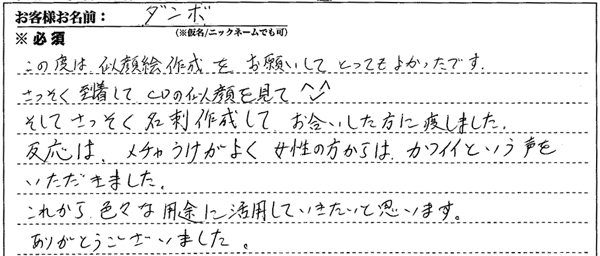 お客様お名前： ダンボ
※必須 (※仮名/ニックネームでも可)
この度は 似顔絵作成を お願いして とってもよかったです.
さっそく 到着して CDの似顔を見て ^^
そしてさっそく 名刺作成して お会いした方に渡しました.
反応は、メチャうけがよく 女性の方からは カワイイという声を
いただきました.
これから 色々な用途に活用していきたいと思います。
ありがとうございました。